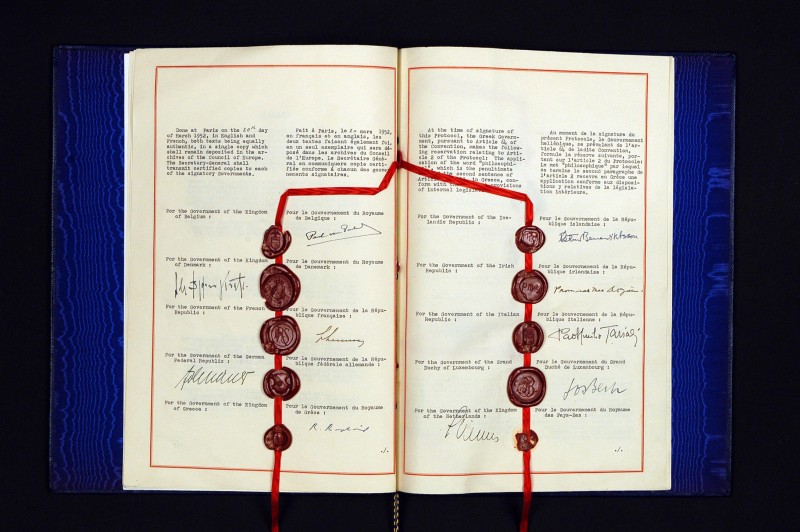 Done at Paris on the 20th day
of March 1952, in English and
French, both texts being equally
authentic, in a single copy which
shall remain deposited in the ar-
chives of the Council of Europe.
The Secretary-General shall
transmit certified copies to each
of the signatory Governments.
Fait à Paris, le 20 mars 1952,
en français et en anglais, les
deux textes faisant également foi,
en un seul exemplaire qui sera dé-
posé dans les archives du Conseil
de l'Europe. Le Secrétaire Géné-
ral en communiquera copie certi-
fiée conforme à chacun des gouver-
nements signataires.
For the Government of the Kingdom
of Belgium :
Pour le Gouvernement du Royaume
de Belgique :
For the Government of the Kingdom
of Denmark :
Pour le Gouvernement du Royaume
de Danemark :
For the Government of the French
Republic :
Pour le Gouvernement de la Répu-
blique française :
For the Government of the German
Federal Republic :
Pour le Gouvernement de la Répu-
blique fédérale allemande :
For the Government of the Kingdom
of Greece :
Pour le Gouvernement du Royaume
de Grèce :
./.
At the time of signature of
this Protocol, the Greek Govern-
ment, pursuant to Article 64 of
the Convention, makes the follow-
ing reservation relating to Arti-
cle 2 of the Protocol: The appli-
cation of the word "philosophi-
cal", which is the penultimate
of the second sentence of
Article in Greece, con-
form with the provisions
of internal legislation
Au moment de la signature du
présent Protocole, le Gouvernement
hellénique, se prévalant de l'Ar-
ticle 64 de ladite Convention,
formule la réserve suivante, por-
tant sur l'article 2 du Protocole:
le mot "philosophique" par lequel
se termine le second paragraphe de
l'Article 2 recevra en Grèce une
application conforme aux disposi-
tions y relatives de la législa-
tion intérieure.
For the Government of the Ice-
landic Republic :
Pour le Gouvernement de la Répu-
blique islandaise :
For the Government of the Irish
Republic :
Pour le Gouvernement de la Répu-
blique irlandaise :
For the Government of the Italian
Republic :
Pour le Gouvernement de la Répu-
blique italienne :
For the Government of the Grand
Duchy of Luxembourg :
Pour le Gouvernement du Grand
Duché de Luxembourg :
For the Government of the Kingdom
of the Netherlands :
Pour le Gouvernement du Royaume
des Pays-Bas :
./.